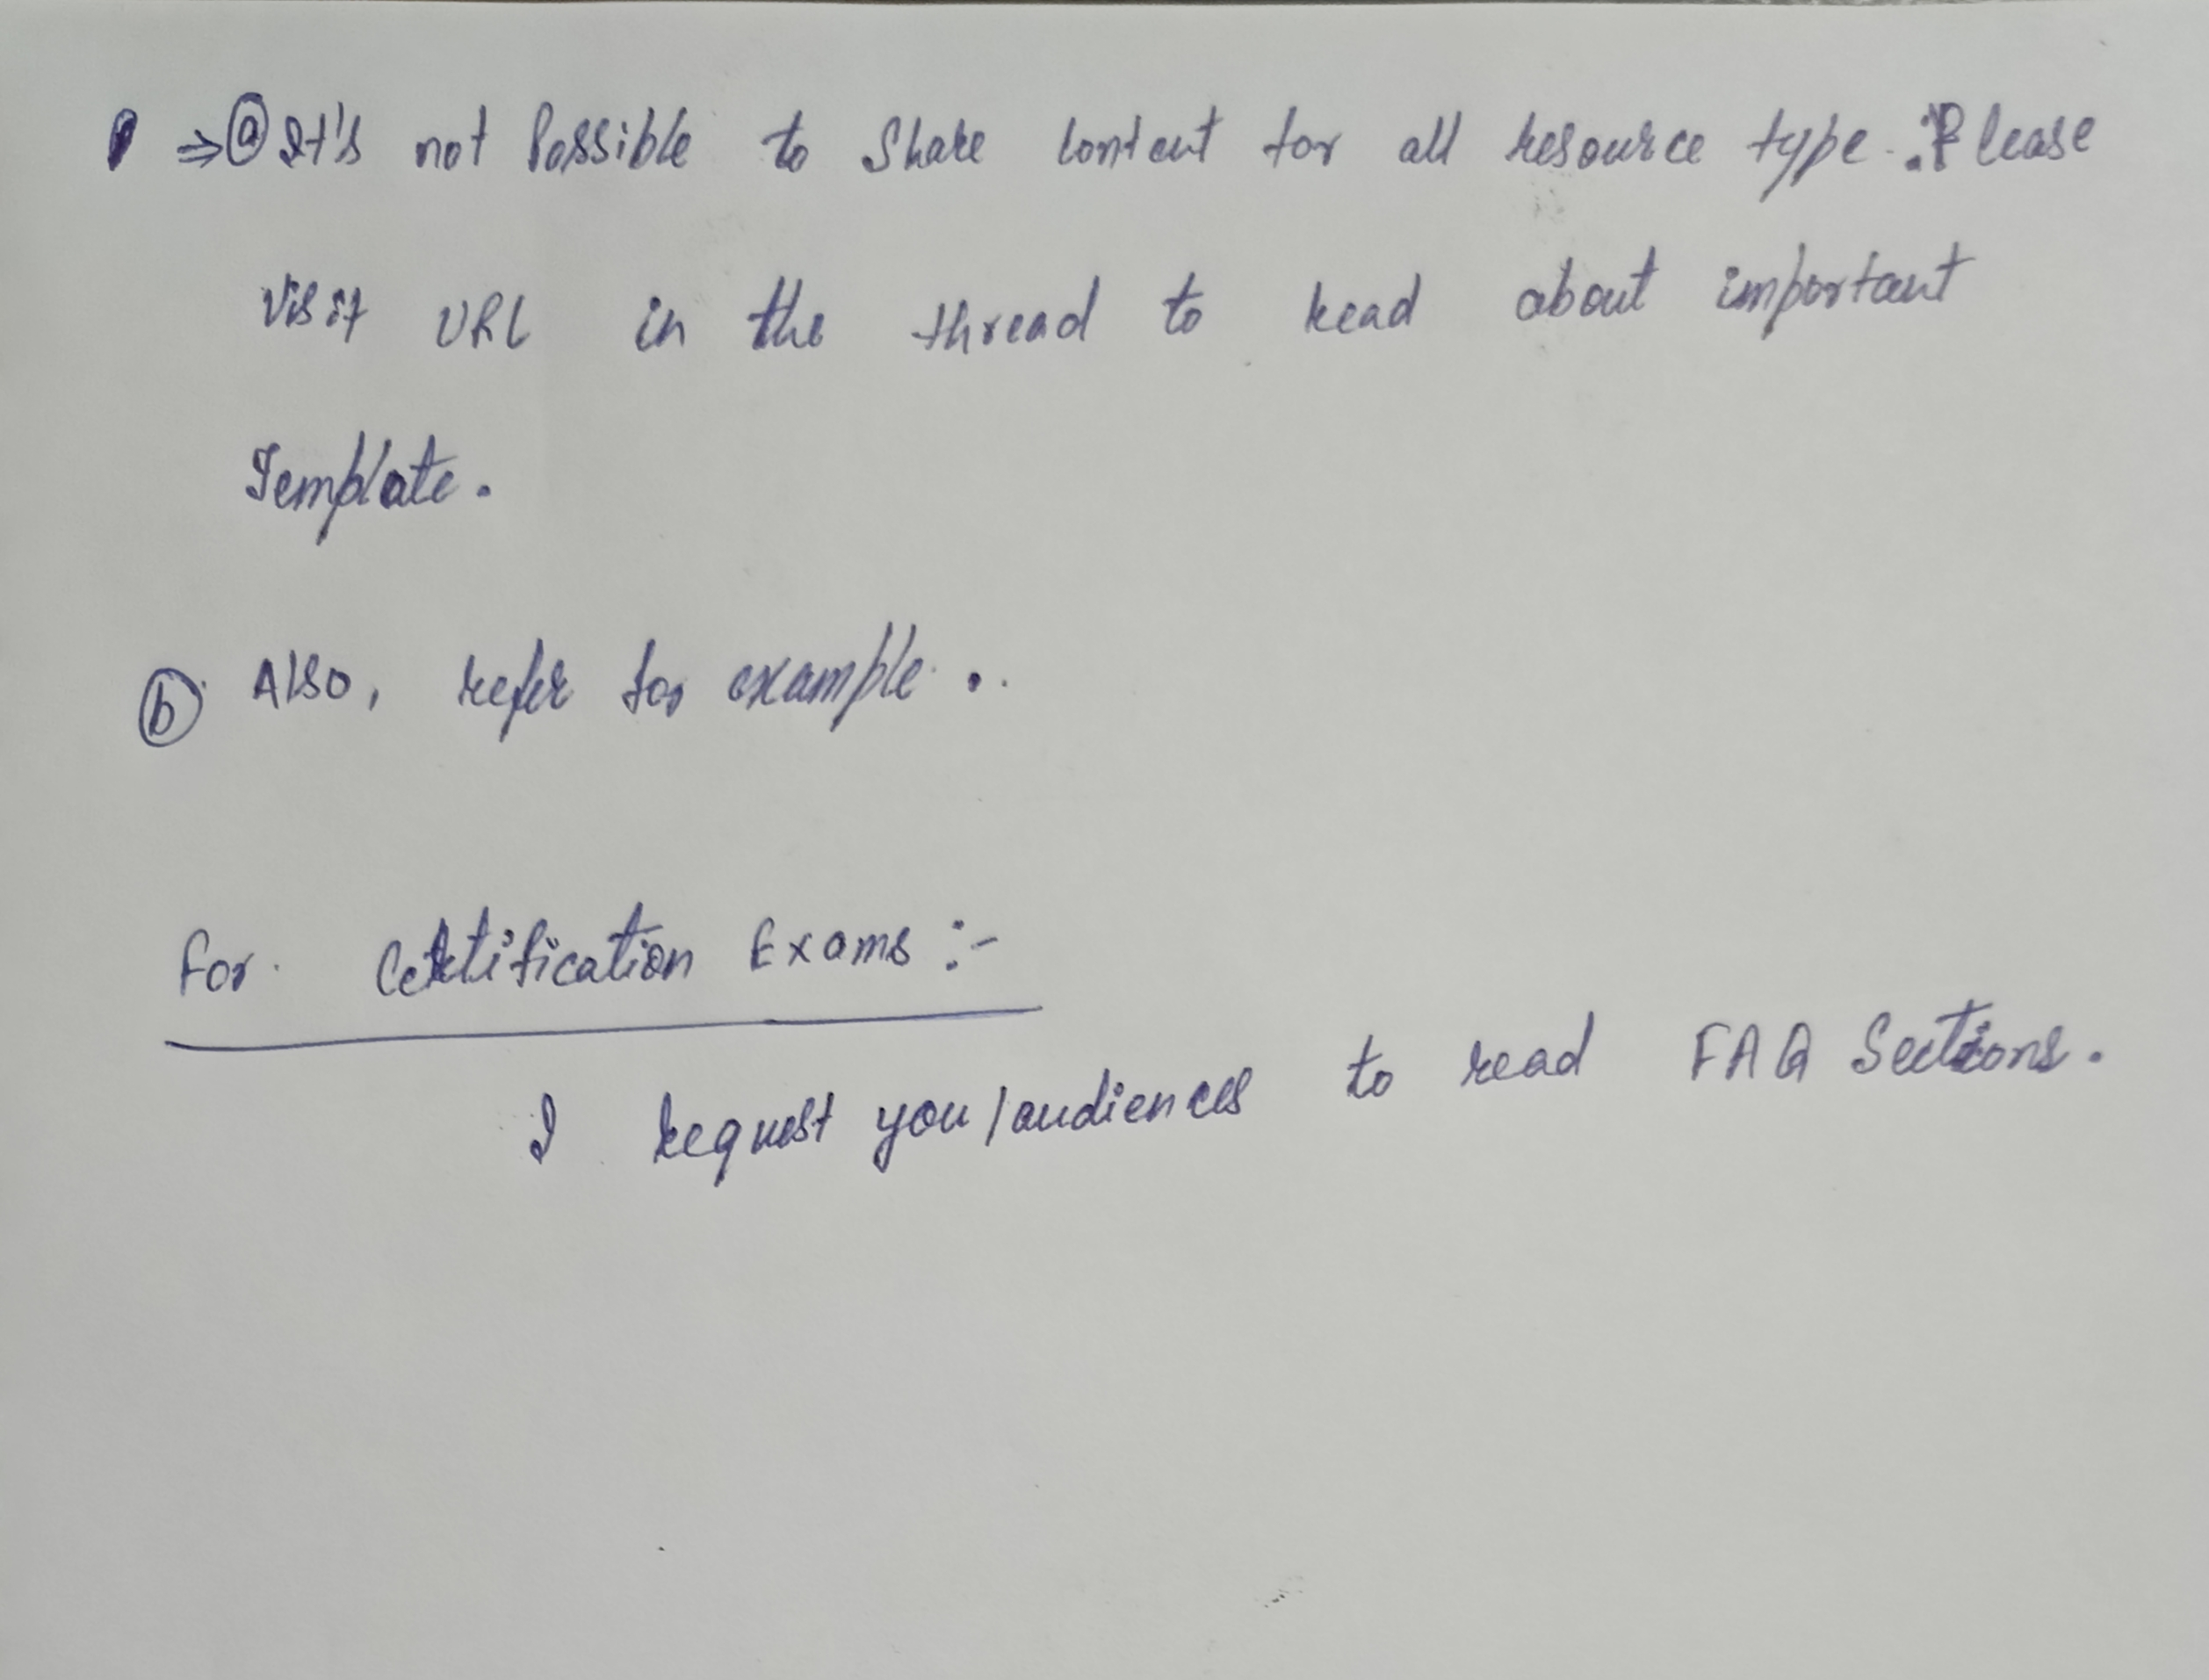 ⇒ ⓐ It's not Possible to Share Content for all resource type. Please
Visit URL in the thread to read about important
Template.
ⓑ Also, refer for example..
For Certification Exams :-
I request you/audiences to read FAQ Sections.